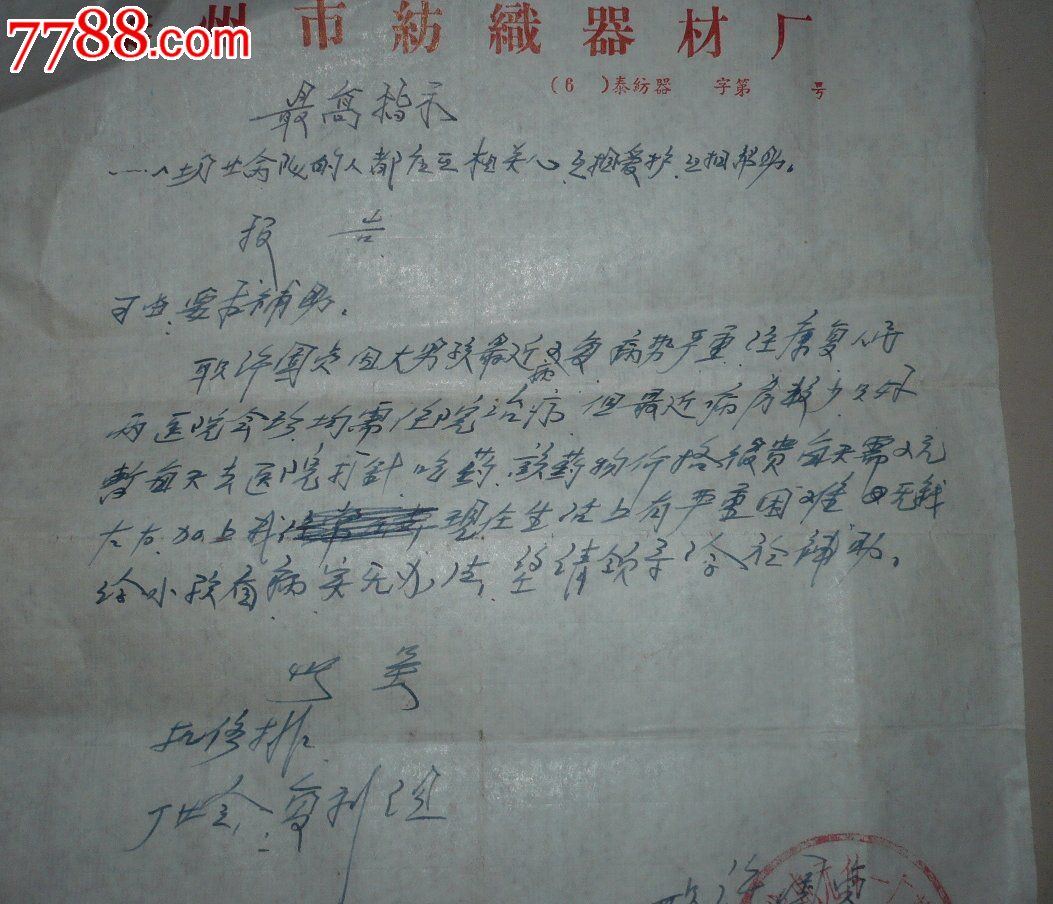 7788.com
州市紡織器材厂
(6 )泰紡器 字第 号
最高指示
……一切革命队伍的人都应互相关心 互相爱护 互相帮助。
报 告
事由：要求補助。
职许国贞因大男孩最近又病 病势严重 经康复人民
两医院会珍均需住院治病 但最近病房较少只好
暂每天去医院打針吃药，該药物价格很贵每天需 元
左右，加上 现在生活上有严重困难 无钱
给小孩看病实无办法，望请领导 給于補助。
此 致
机修排
厂 会：福利组
职 许国贞